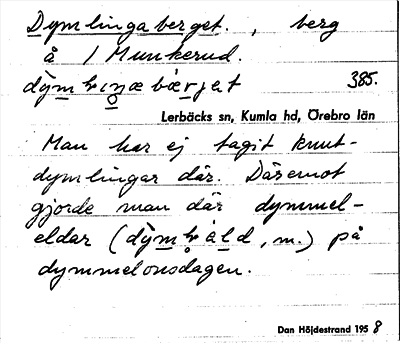 Dymlingaberget. , berg
å / Munkerud.
dy̆mlıŋabærjet 385.
Lerbäcks sn, Kumla hd, Örebro län
Man har ej tagit knut-
dymlingar där. Däremot
gjorde man där dymmel-
eldar (dy̆mbåld, m.) på
dymmelonsdagen.
Dan Höjdestrand 1958